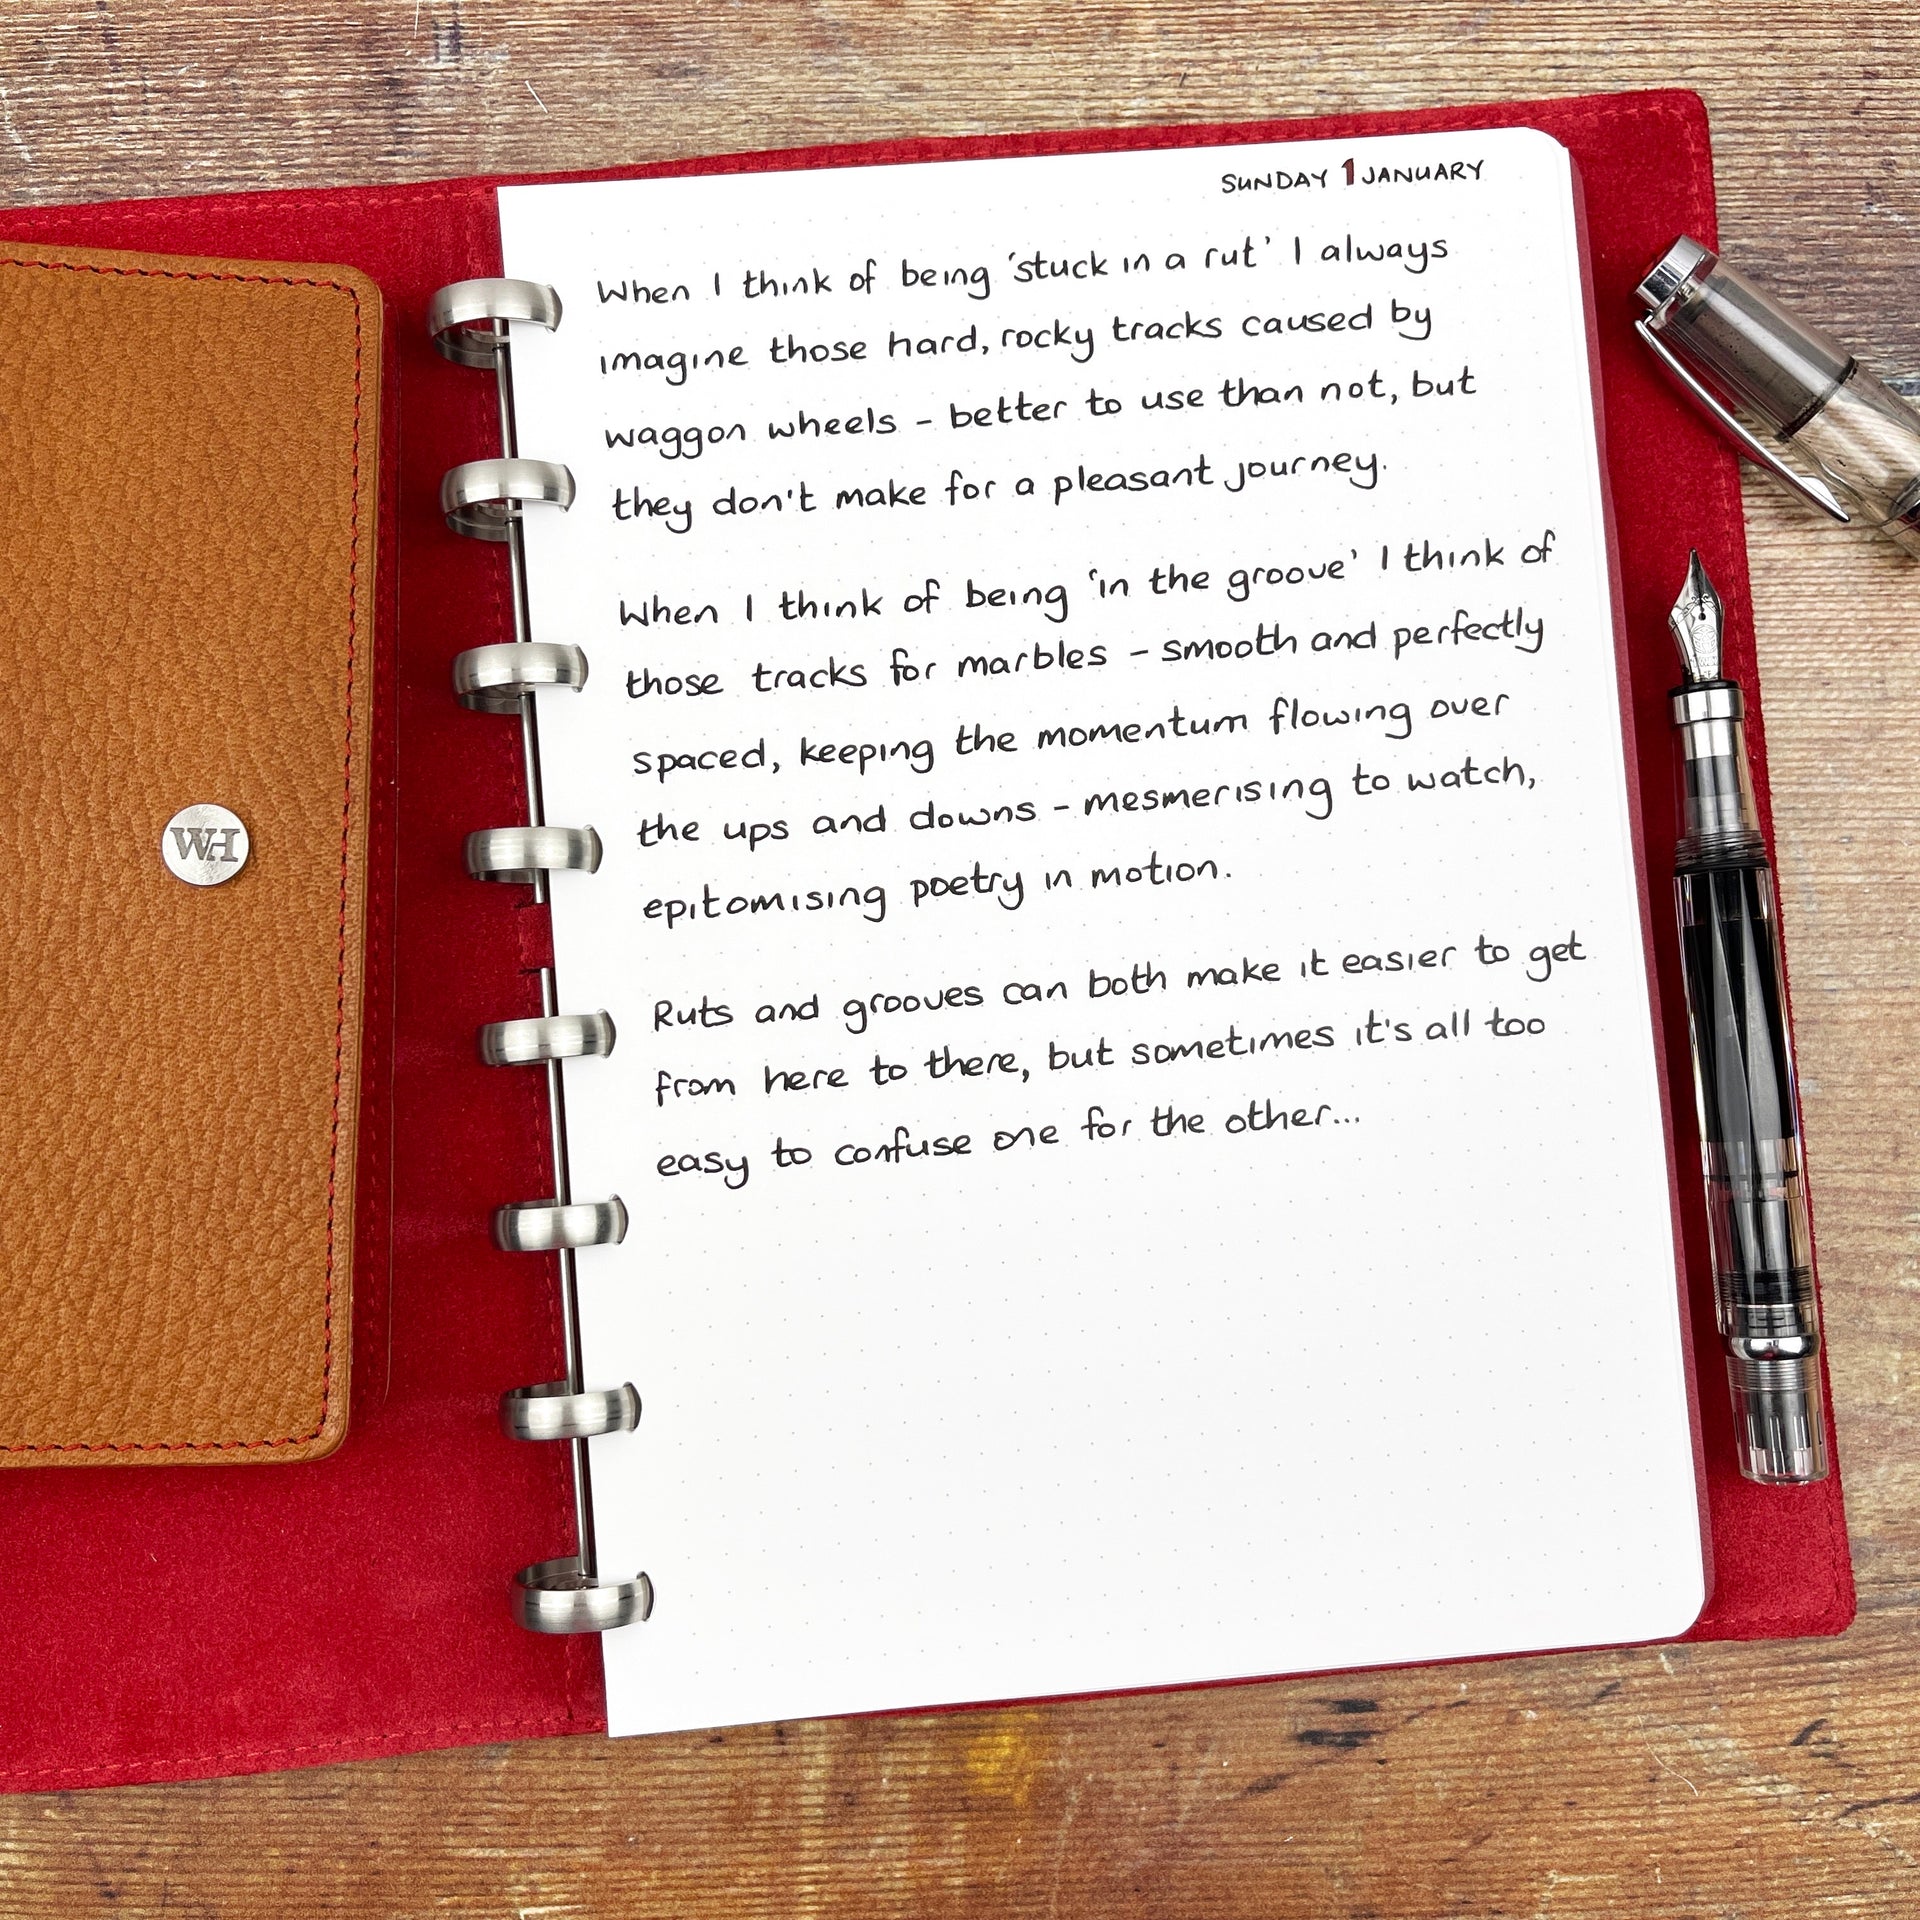 SUNDAY 1 JANUARY
When I think of being 'stuck in a rut' I always
imagine those hard, rocky tracks caused by
waggon wheels - better to use than not, but
they don't make for a pleasant journey.
When I think of being 'in the groove' I think of
those tracks for marbles - smooth and perfectly
spaced, keeping the momentum flowing over
the ups and downs - mesmerising to watch,
epitomising poetry in motion.
Ruts and grooves can both make it easier to get
from here to there, but sometimes it's all too
easy to confuse one for the other...
WH